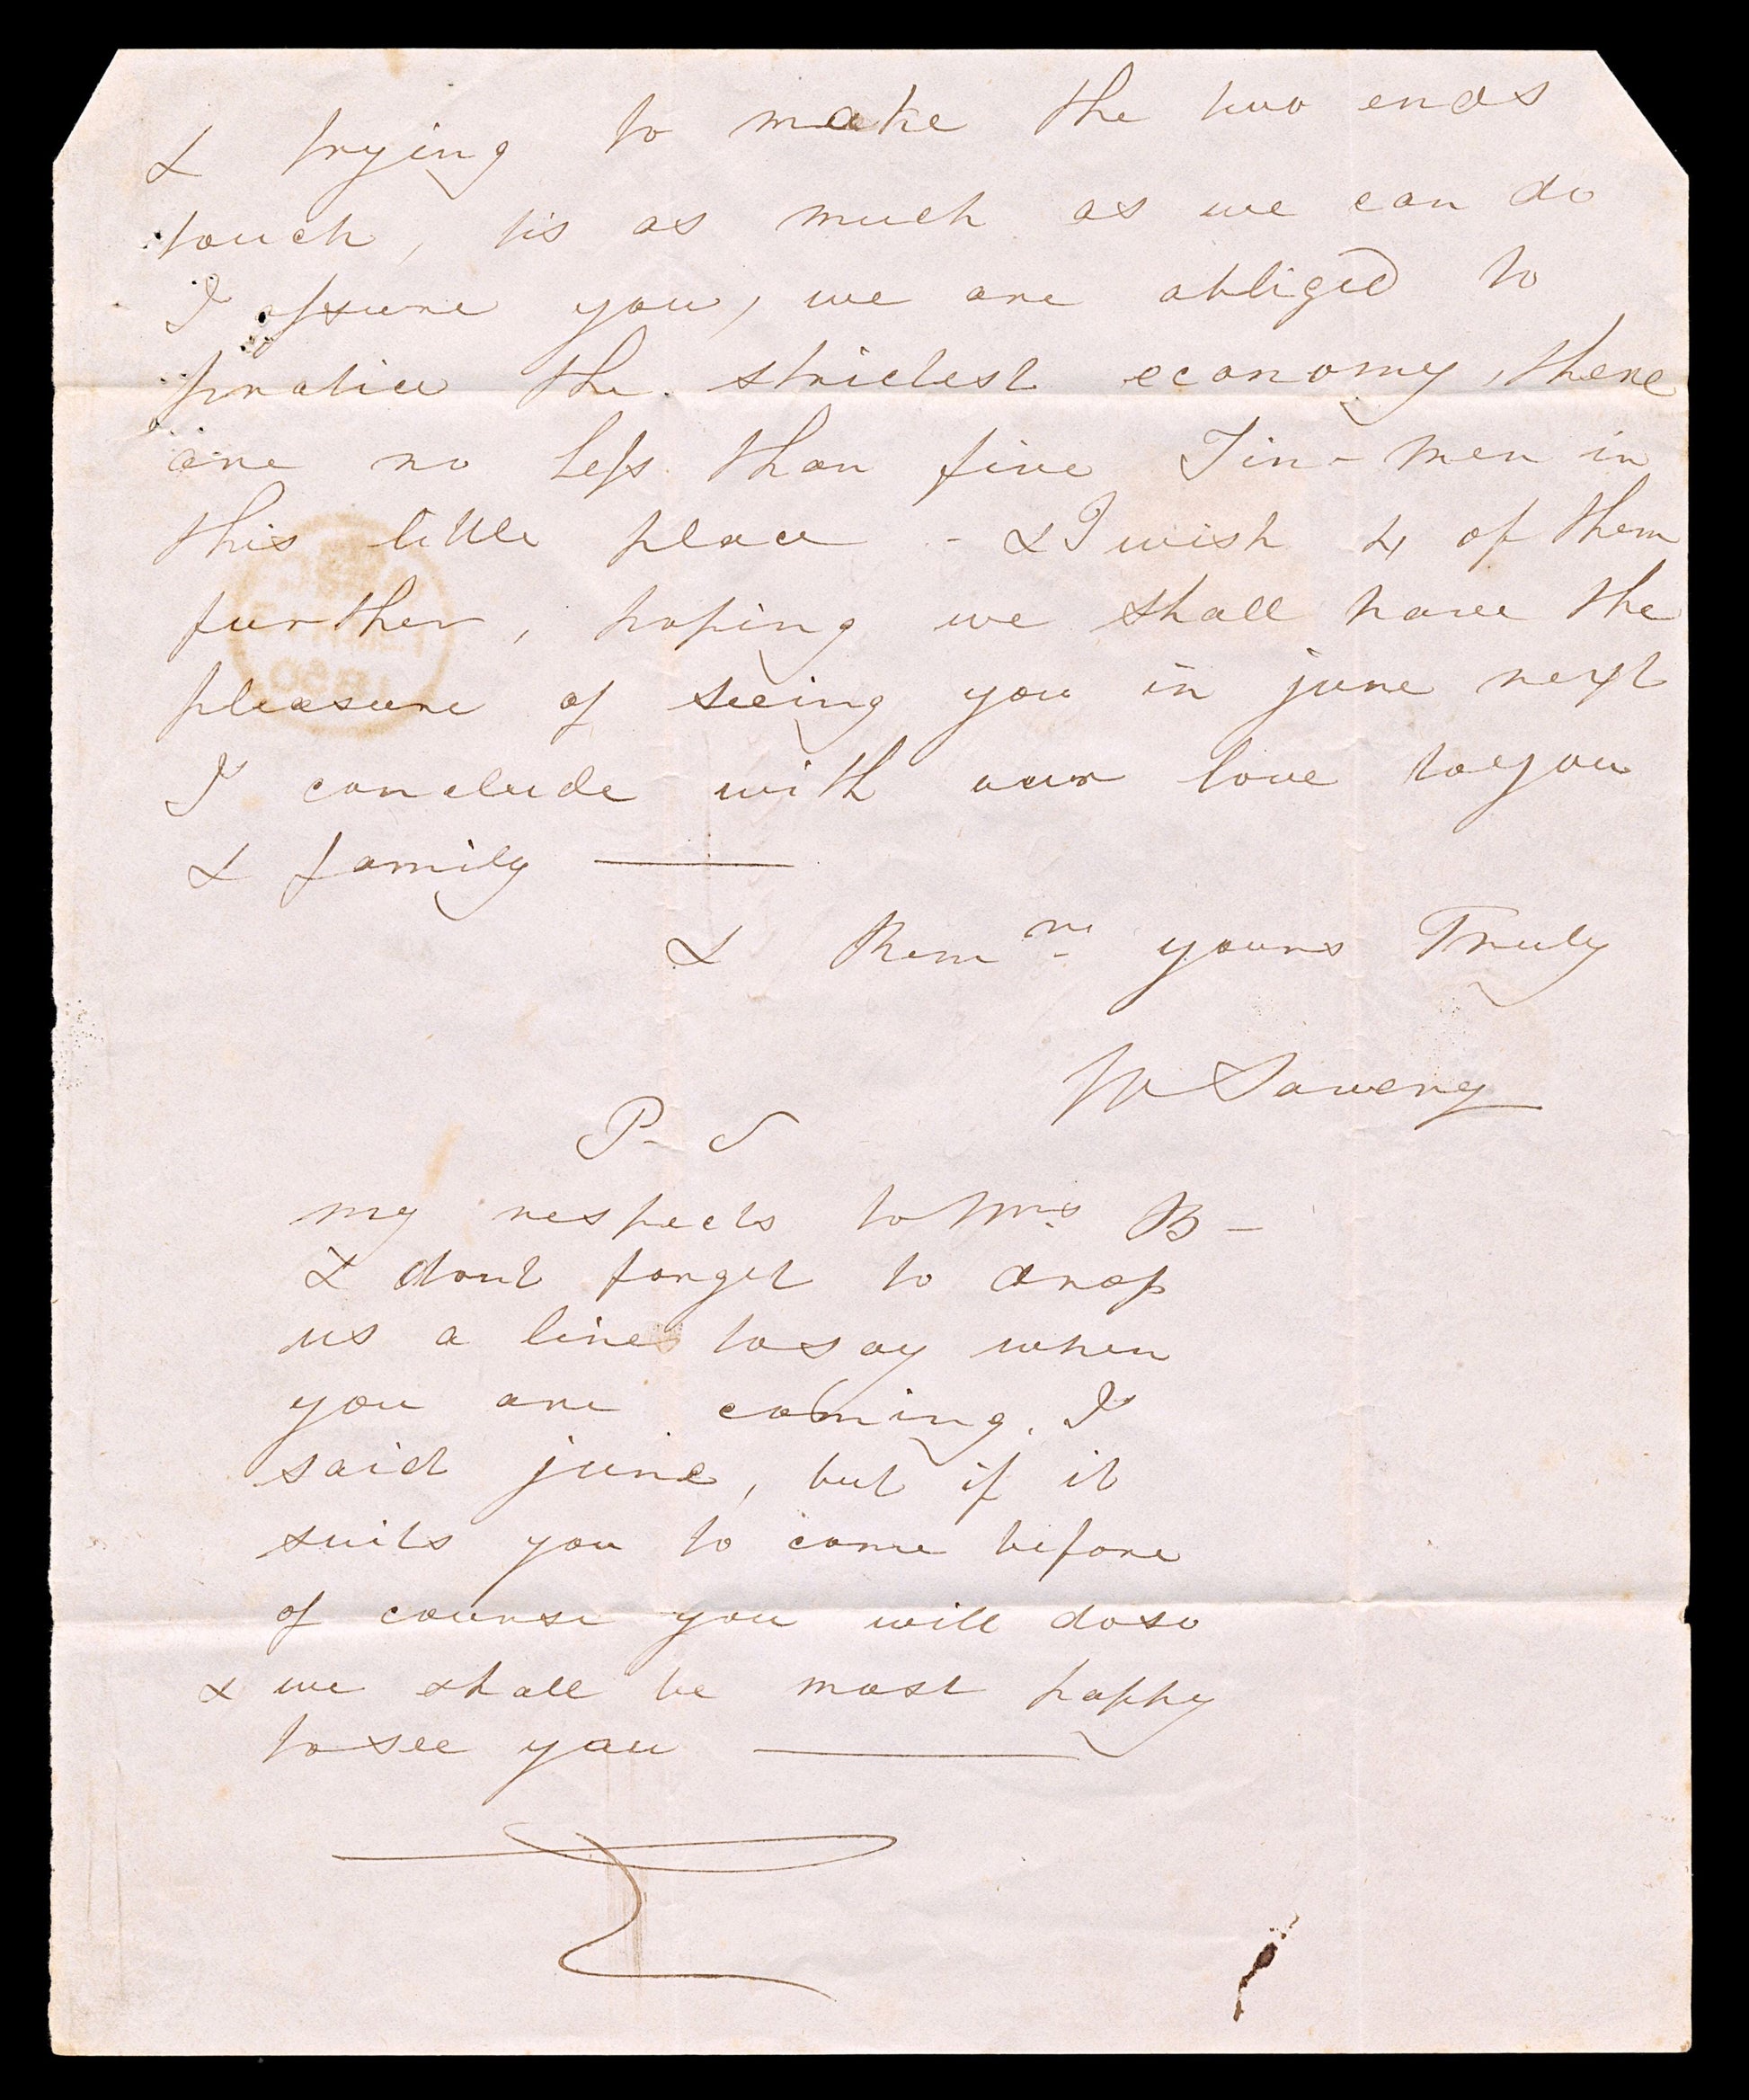 & trying to make the two ends
touch, tis as much as we can do
I assure you, we are obliged to
pratice the strictest economy, there
are no less than five Tin-men in
this little place - & I wish 4 of them
further, hoping we shall have the
pleasure of seeing you in june next
I conclude with our love to you
& family ———
& Remn yours Truly
W Sawery
P-S
my respects to Mrs B-
& dont forget to drop
us a line to say when
you are coming. I
said june, but if it
suits you to come before
of course you will do so
& we shall be most happy
to see you ———
1850